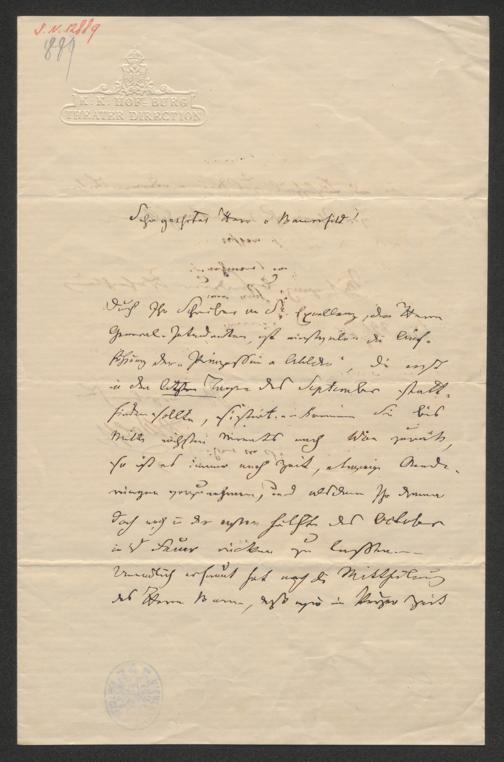 I. N. 12889
1889
K. K. HOF-BURG
THEATER DIRECTION
Sehr geehrter Herr v Bauernfeld!
Durch Ihr Schreiben an Se Excellenz, den Herrn
General-Intendanten, ist einstweilen die Auf-
führung der „Prinzessin v Ahlden", die erst
in den letzten Tagen des September statt-
finden sollte, sistirt. – Kommen Sie bis
Mitte nächsten Monats nach Wien zurück,
so ist es immer noch Zeit, etwaige Aende-
rungen vorzunehmen, und alsdann Ihr Drama
doch noch in der ersten Hälfte des October
in Scene rücken zu lassen. –
Unendlich erfreut hat mich die Mittheilung
des Herrn Baron, daß wir in kurzer Zeit